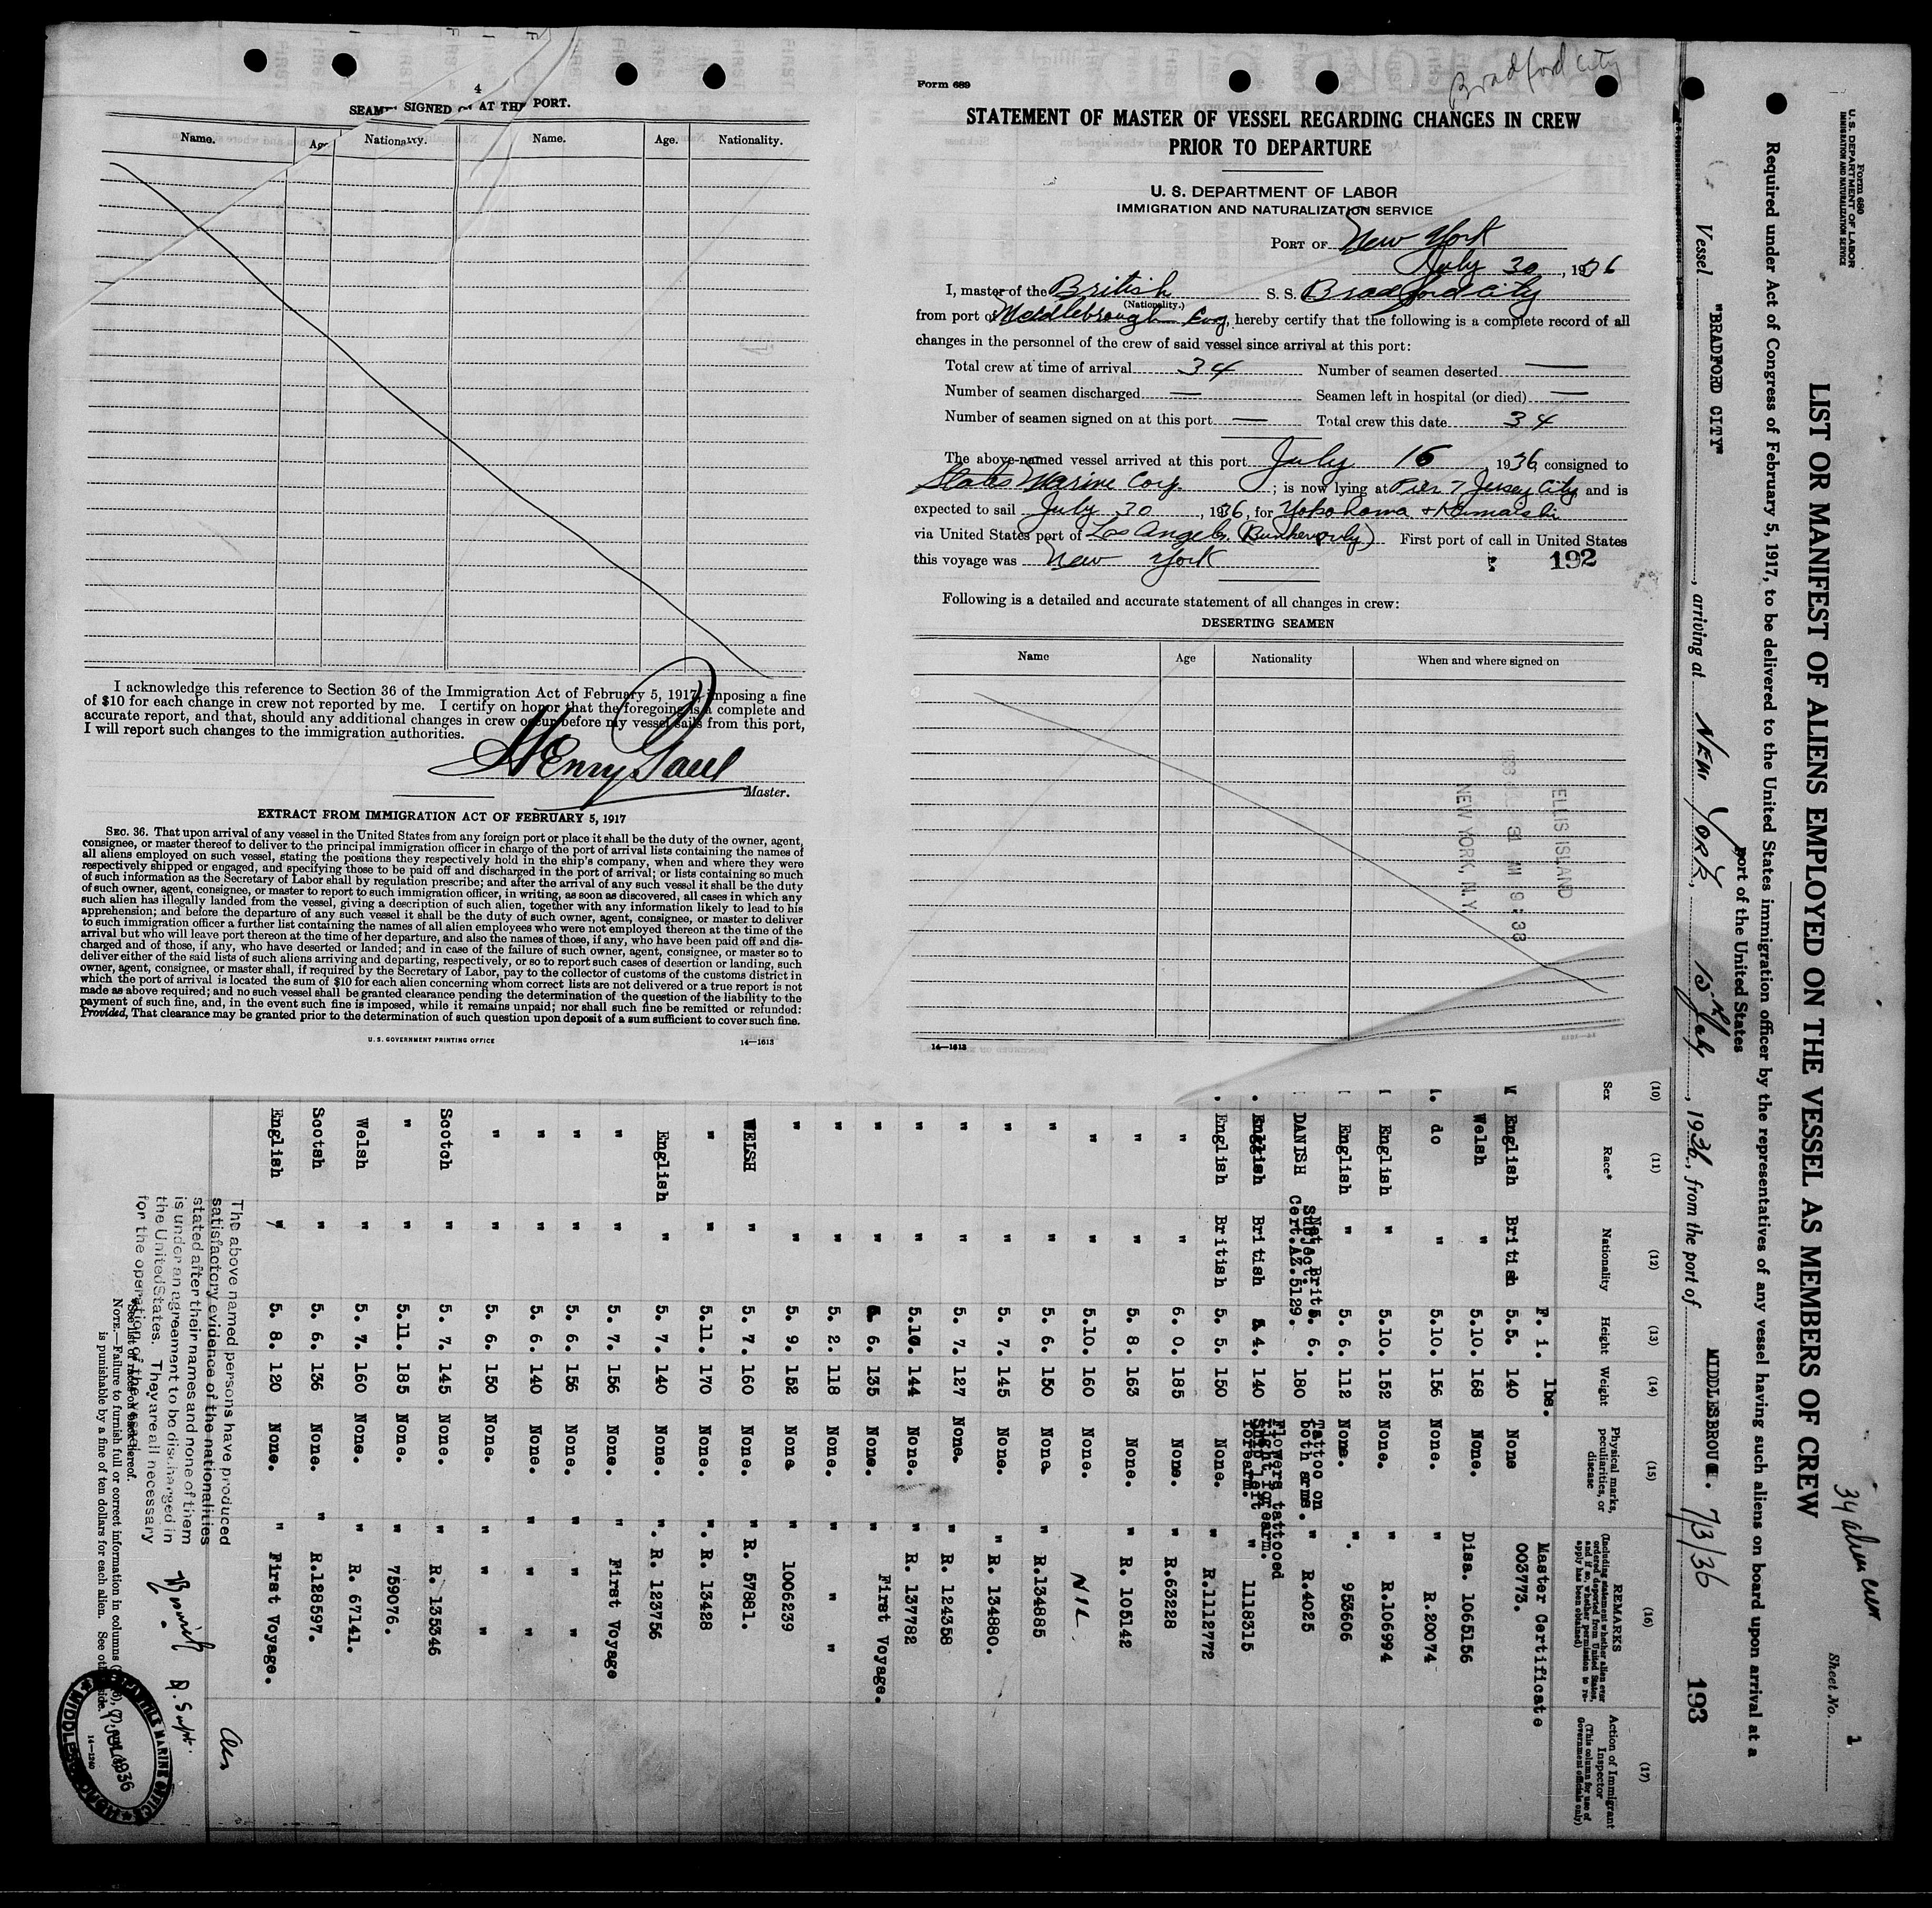 4
SEAMEN SIGNED ON AT THE PORT.
Name. Age Nationality. Name. Age. Nationality.
I acknowledge this reference to Section 36 of the Immigration Act of February 5, 1917, imposing a fine
of $10 for each change in crew not reported by me. I certify on honor that the foregoing is a complete and
accurate report, and that, should any additional changes in crew occur before my vessel sails from this port,
I will report such changes to the immigration authorities.
Master.
EXTRACT FROM IMMIGRATION ACT OF FEBRUARY 5, 1917
SEC. 36. That upon arrival of any vessel in the United States from any foreign port or place it shall be the duty of the owner, agent,
consignee, or master thereof to deliver to the principal immigration officer in charge of the port of arrival lists containing the names of
all aliens employed on such vessel, stating the positions they respectively hold in the ship's company, when and where they were
respectively shipped or engaged, and specifying those to be paid off and discharged in the port of arrival; or lists containing so much
of such information as the Secretary of Labor shall by regulation prescribe; and after the arrival of any such vessel it shall be the duty
of such owner, agent, consignee, or master to report to such immigration officer, in writing, as soon as discovered, all cases in which any
such alien has illegally landed from the vessel, giving a description of such alien, together with any information likely to lead to his
apprehension; and before the departure of any such vessel it shall be the duty of such owner, agent, consignee, or master to deliver
to such immigration officer a further list containing the names of all alien employees who were not employed thereon at the time of the
arrival but who will leave port thereon at the time of her departure, and also the names of those, if any, who have been paid off and dis-
charged and of those, if any, who have deserted or landed; and in case of the failure of such owner, agent, consignee, or master so to
deliver either of the said lists of such aliens arriving and departing, respectively, or so to report such cases of desertion or landing, such
owner, agent, consignee, or master shall, if required by the Secretary of Labor, pay to the collector of customs of the customs district in
which the port of arrival is located the sum of $10 for each alien concerning whom correct lists are not delivered or a true report is not
made as above required; and no such vessel shall be granted clearance pending the determination of the question of the liability to the
payment of such fine, and, in the event such fine is imposed, while it remains unpaid; nor shall such fine be remitted or refunded:
Provided, That clearance may be granted prior to the determination of such question upon deposit of a sum sufficient to cover such fine.
U. S. GOVERNMENT PRINTING OFFICE 14—1613
Bradford City
Form 689
STATEMENT OF MASTER OF VESSEL REGARDING CHANGES IN CREW
PRIOR TO DEPARTURE
U. S. DEPARTMENT OF LABOR
IMMIGRATION AND NATURALIZATION SERVICE
PORT OF New York
July 30, 1936
I, master of the British S. S. Bradford City
(Nationality.)
from port of Middlebrough Eng, hereby certify that the following is a complete record of all
changes in the personnel of the crew of said vessel since arrival at this port:
Total crew at time of arrival 34 Number of seamen deserted —
Number of seamen discharged — Seamen left in hospital (or died) —
Number of seamen signed on at this port — Total crew this date 34
The above-named vessel arrived at this port July 16, 1936, consigned to
States Marine Corp. ; is now lying at Pier 7 Jersey City and is
expected to sail July 30, 1936, for Yokohama +
via United States port of Los Angeles (Bunkers only) First port of call in United States
this voyage was New York
192
Following is a detailed and accurate statement of all changes in crew:
DESERTING SEAMEN
Name Age Nationality When and where signed on
ELLIS ISLAND
31 AM 9:38
NEW YORK, N.Y.
14—1613
Form 680
U. S. DEPARTMENT OF LABOR
IMMIGRATION AND NATURALIZATION SERVICE
34 alien crew
Sheet No. 1
LIST OR MANIFEST OF ALIENS EMPLOYED ON THE VESSEL AS MEMBERS OF CREW
Required under Act of Congress of February 5, 1917, to be delivered to the United States immigration officer by the representatives of any vessel having such aliens on board upon arrival at a
port of the United States
Vessel "BRADFORD CITY", arriving at NEW YORK, 15th July, 1936, from the port of MIDDLESBROUGH. 7/3/36
193
(10) (11) (12) (13) (14) (15) (16) (17)
Sex Race* Nationality Height Weight Physical marks, peculiarities, or disease REMARKS (Including statement whether alien ever ordered deported from United States, and if so, whether permission to reapply has been obtained) Action of Immigrant Inspector (This column for use of Government officials only)
F. i. lbs. Master Certificate
M English British 5. 5. 140 None 003773.
Welsh " 5.10. 168 None. Diss. 1065156
do " 5.10. 156 None. " R.20074
English " 5.10. 152 None. " R.106994
English " 5. 6. 112 None. ". 953606
DANISH Nat. Brit. Subject. Cert.AZ.5129. 5. 6. 180 Tattoo on both arms. " R.4025
English British 5 4. 140 Flowers tattooed right forearm. Ship left forearm. " 118315
English British 5. 5. 150 None. " R.1112772
" " 6. 0. 185 None. R.63228
" " 5. 8. 163 None. " R. 105142
" " 5.10. 160 None. NIL.
" " 5. 6. 150 None " R.134885
" " 5. 7. 145 None. " R. 134880.
" " 5. 7. 127 None. " R. 124358
" " 5.10. 144 None. " R. 137782
" " 6. 135 None. " First Voyage.
" " 5. 2. 118 None. " " "
" " 5. 9. 152 None " 1006239
WELSH " 5. 7. 160 None. " R. 57881.
" " 5.11. 170 None. ". R. 13428
English " 5. 7. 140 None. ". R. 123756
" " 5. 7. 156 None. " First Voyage
" " 5. 6. 156 None. " "
" " 5. 6. 140 None. " "
" " 5. 6. 150 None. " "
Scotch " 5. 7. 145 None. " R. 135346
" " 5.11. 185 None. " 759076.
Welsh " 5. 7. 160 None. R. 67141.
Scotsh " 5. 6. 136 None. " R.128597.
English " 5. 8. 120 None. " First Voyage.
The above named persons have produced
satisfactory evidence of the nationalities
stated after their names and none of them
is under an agreement to be discharged in
the United States. They are all necessary
for the operation of the vessel.
D. Supt.
*See list of races on back hereof.
NOTE.—Failure to furnish full or correct information in columns
is punishable by a fine of ten dollars for each alien. See other side.
14—1240
MERCANTILE MARINE OFFICE
JUL 1936
MIDDLESBROUGH